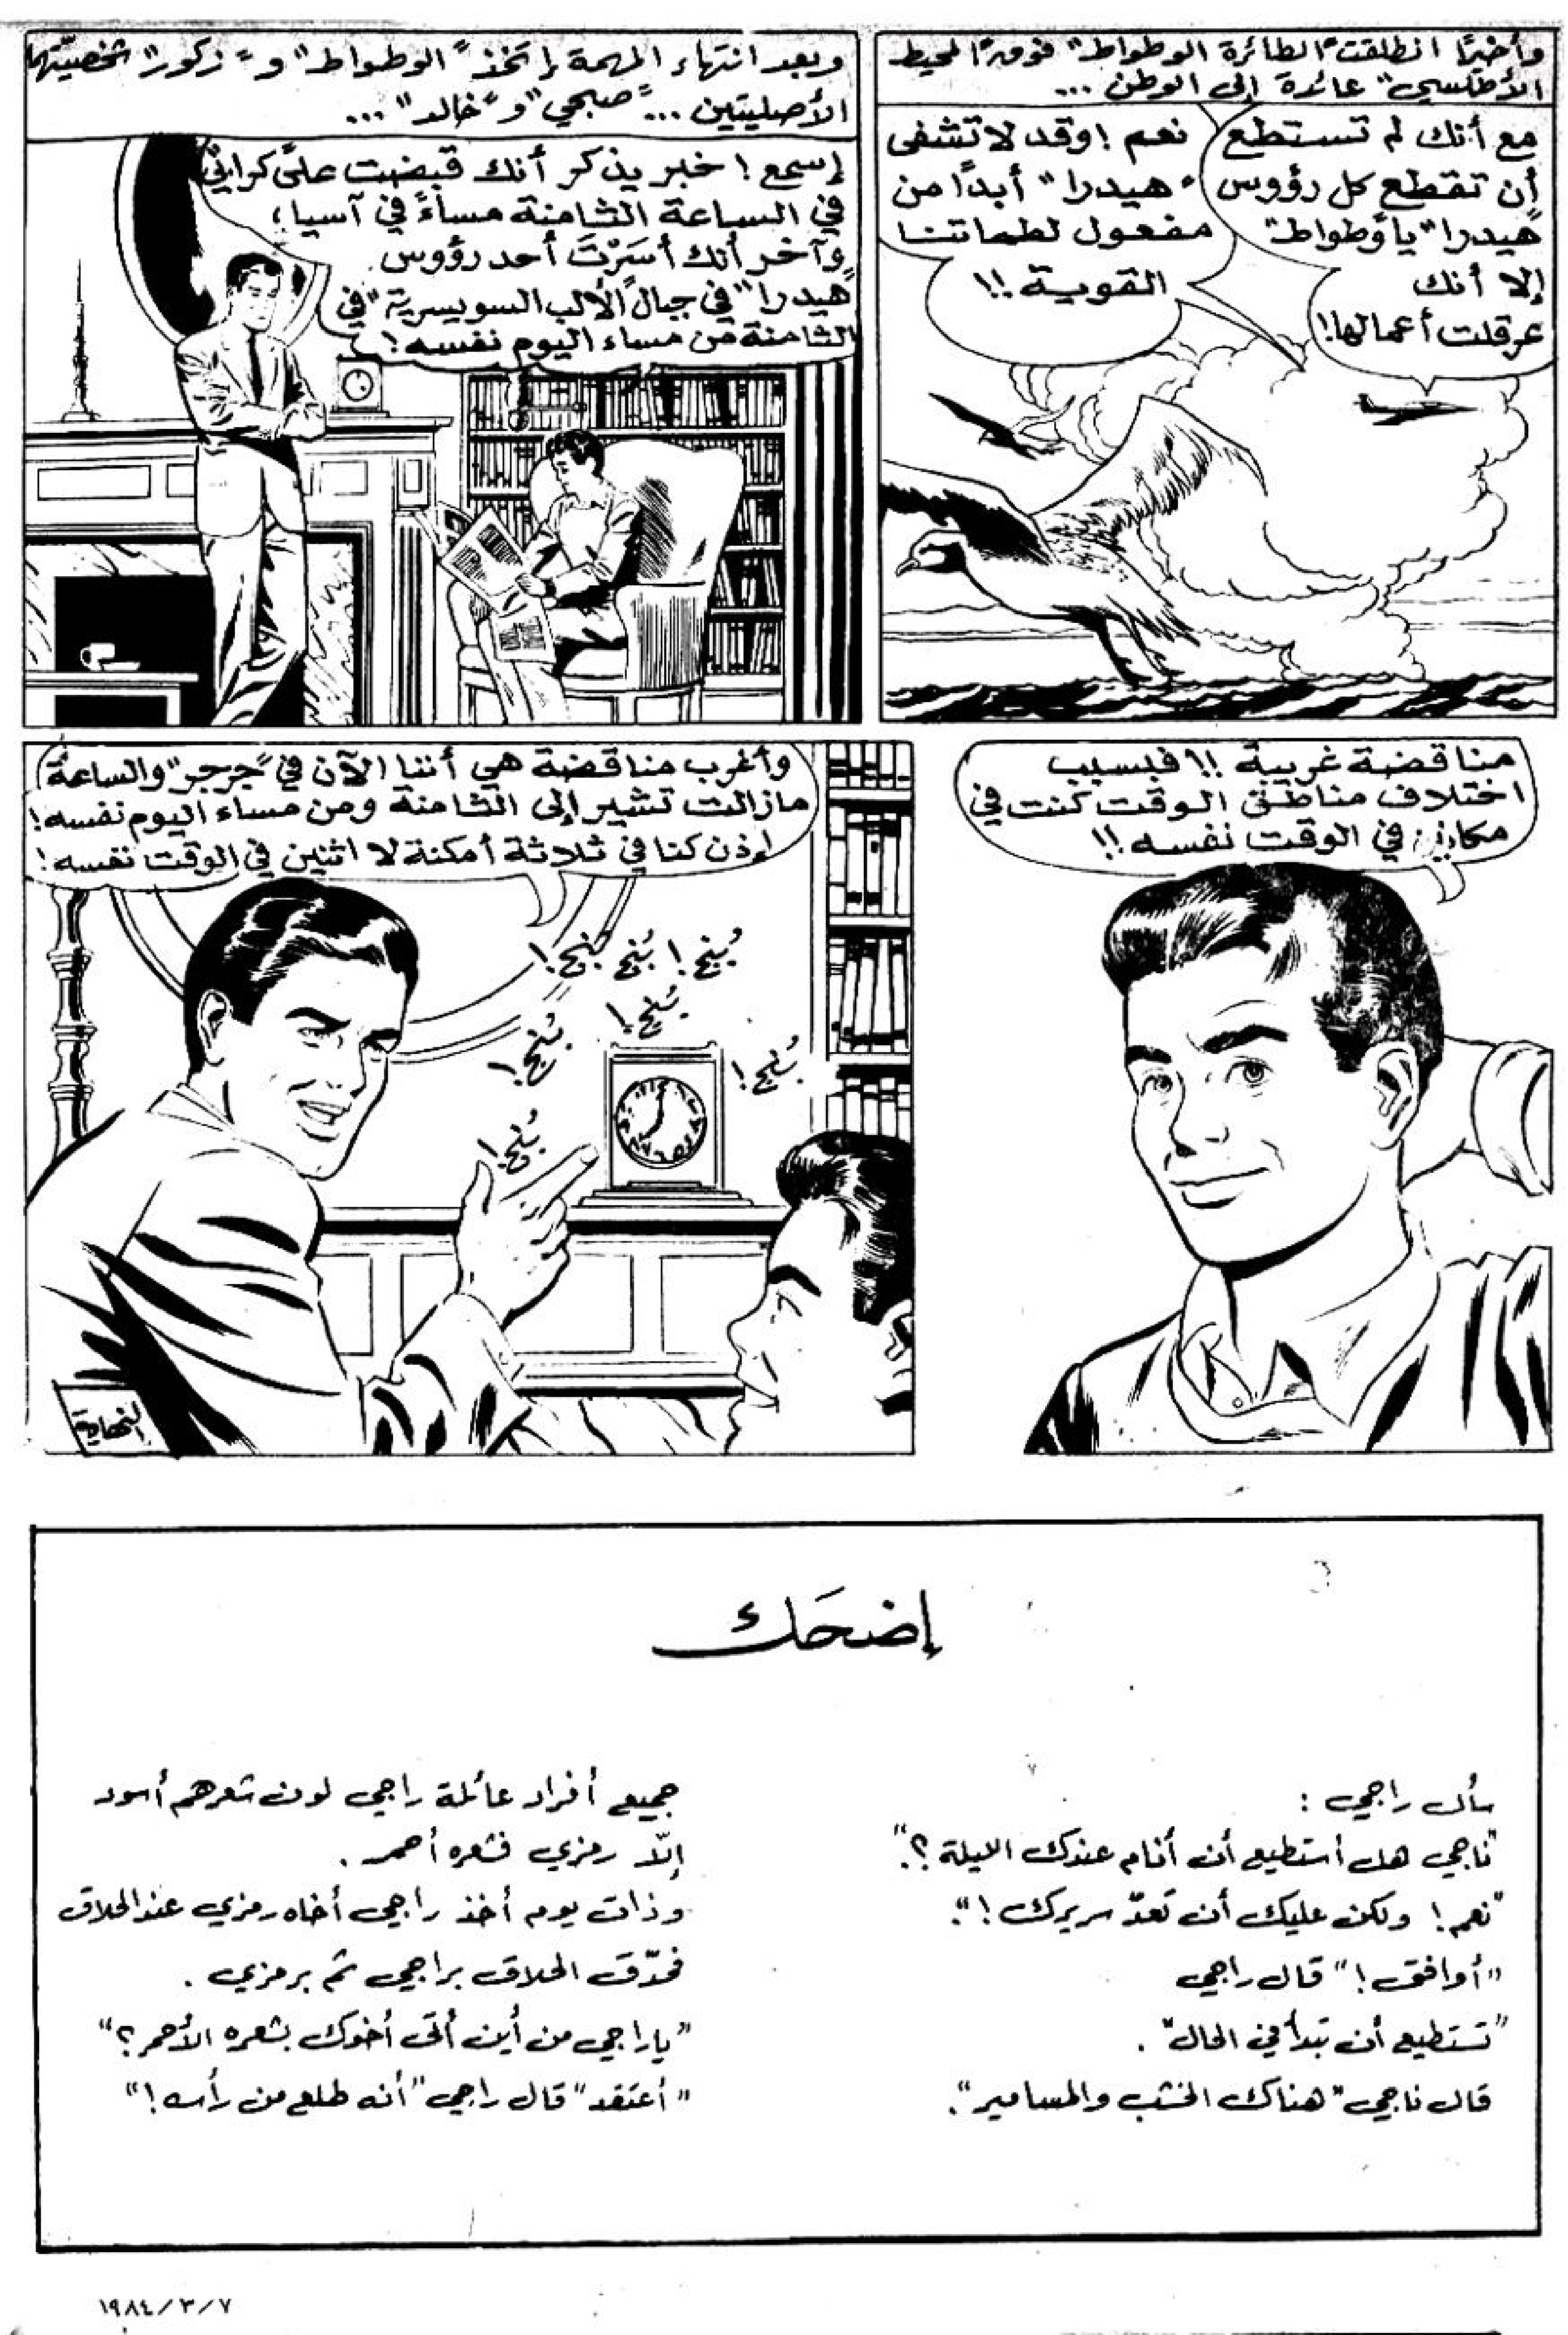 وأخيرًا انطلقت "الطائرة الوطواط" فوق "المحيط
الأطلسي" عائدة إلى الوطن ...
مع أنك لم تستطع
أن تقطع كل رؤوس
"هيدرا" يا "وطواط"
إلا أنك
عرقلت أعمالها!
نعم! وقد لا تشفى
"هيدرا" أبدًا من
مفعول لطماتنا
القوية!!
وبعد انتهاء المهمة إتخذ "الوطواط" و"زكور" شخصيّتهما
الأصليتين ... "صبحي" و"خالد" ...
إسمع! خبر يذكر أنك قبضت على "كرابي"
في الساعة الثامنة مساءً في آسيا،
وآخر أنك أسَرْتَ أحد رؤوس
"هيدرا" في جبال "الألب السويسرية" في
الثامنة من مساء اليوم نفسه!
مناقضة غريبة!! فبسبب
اختلاف مناطق الوقت كنت في
مكانين في الوقت نفسه!!
وأغرب مناقضة هي أننا الآن في "جرجر" والساعة
مازالت تشير إلى الثامنة ومن مساء اليوم نفسه!
إذن كنا في ثلاثة أمكنة لا اثنين في الوقت نفسه!
بُنج! بُنج بُنج!
بُنج!
بُنج!
بُنج!
بُنج!
النهاية
إضحَك
سأل راجي :
"ناجي هل أستطيع أن أنام عندك الليلة؟".
"نعم! ولكن عليك أن تعدّ سريرك!".
"أوافق!" قال راجي
"تستطيع أن تبدأ في الحال".
قال ناجي "هناك الخشب والمسامير".
جميع أفراد عائلة راجي لون شعرهم أسود
إلّا رمزي فشعره أحمر .
وذات يوم أخذ راجي أخاه رمزي عند الحلاق
فحدّق الحلاق براجي ثم برمزي .
"يا راجي من أين أتى أخوك بشعره الأحمر؟"
"أعتقد" قال راجي "أنه طلع من رأسه!"
١٩٨٤/٣/٧